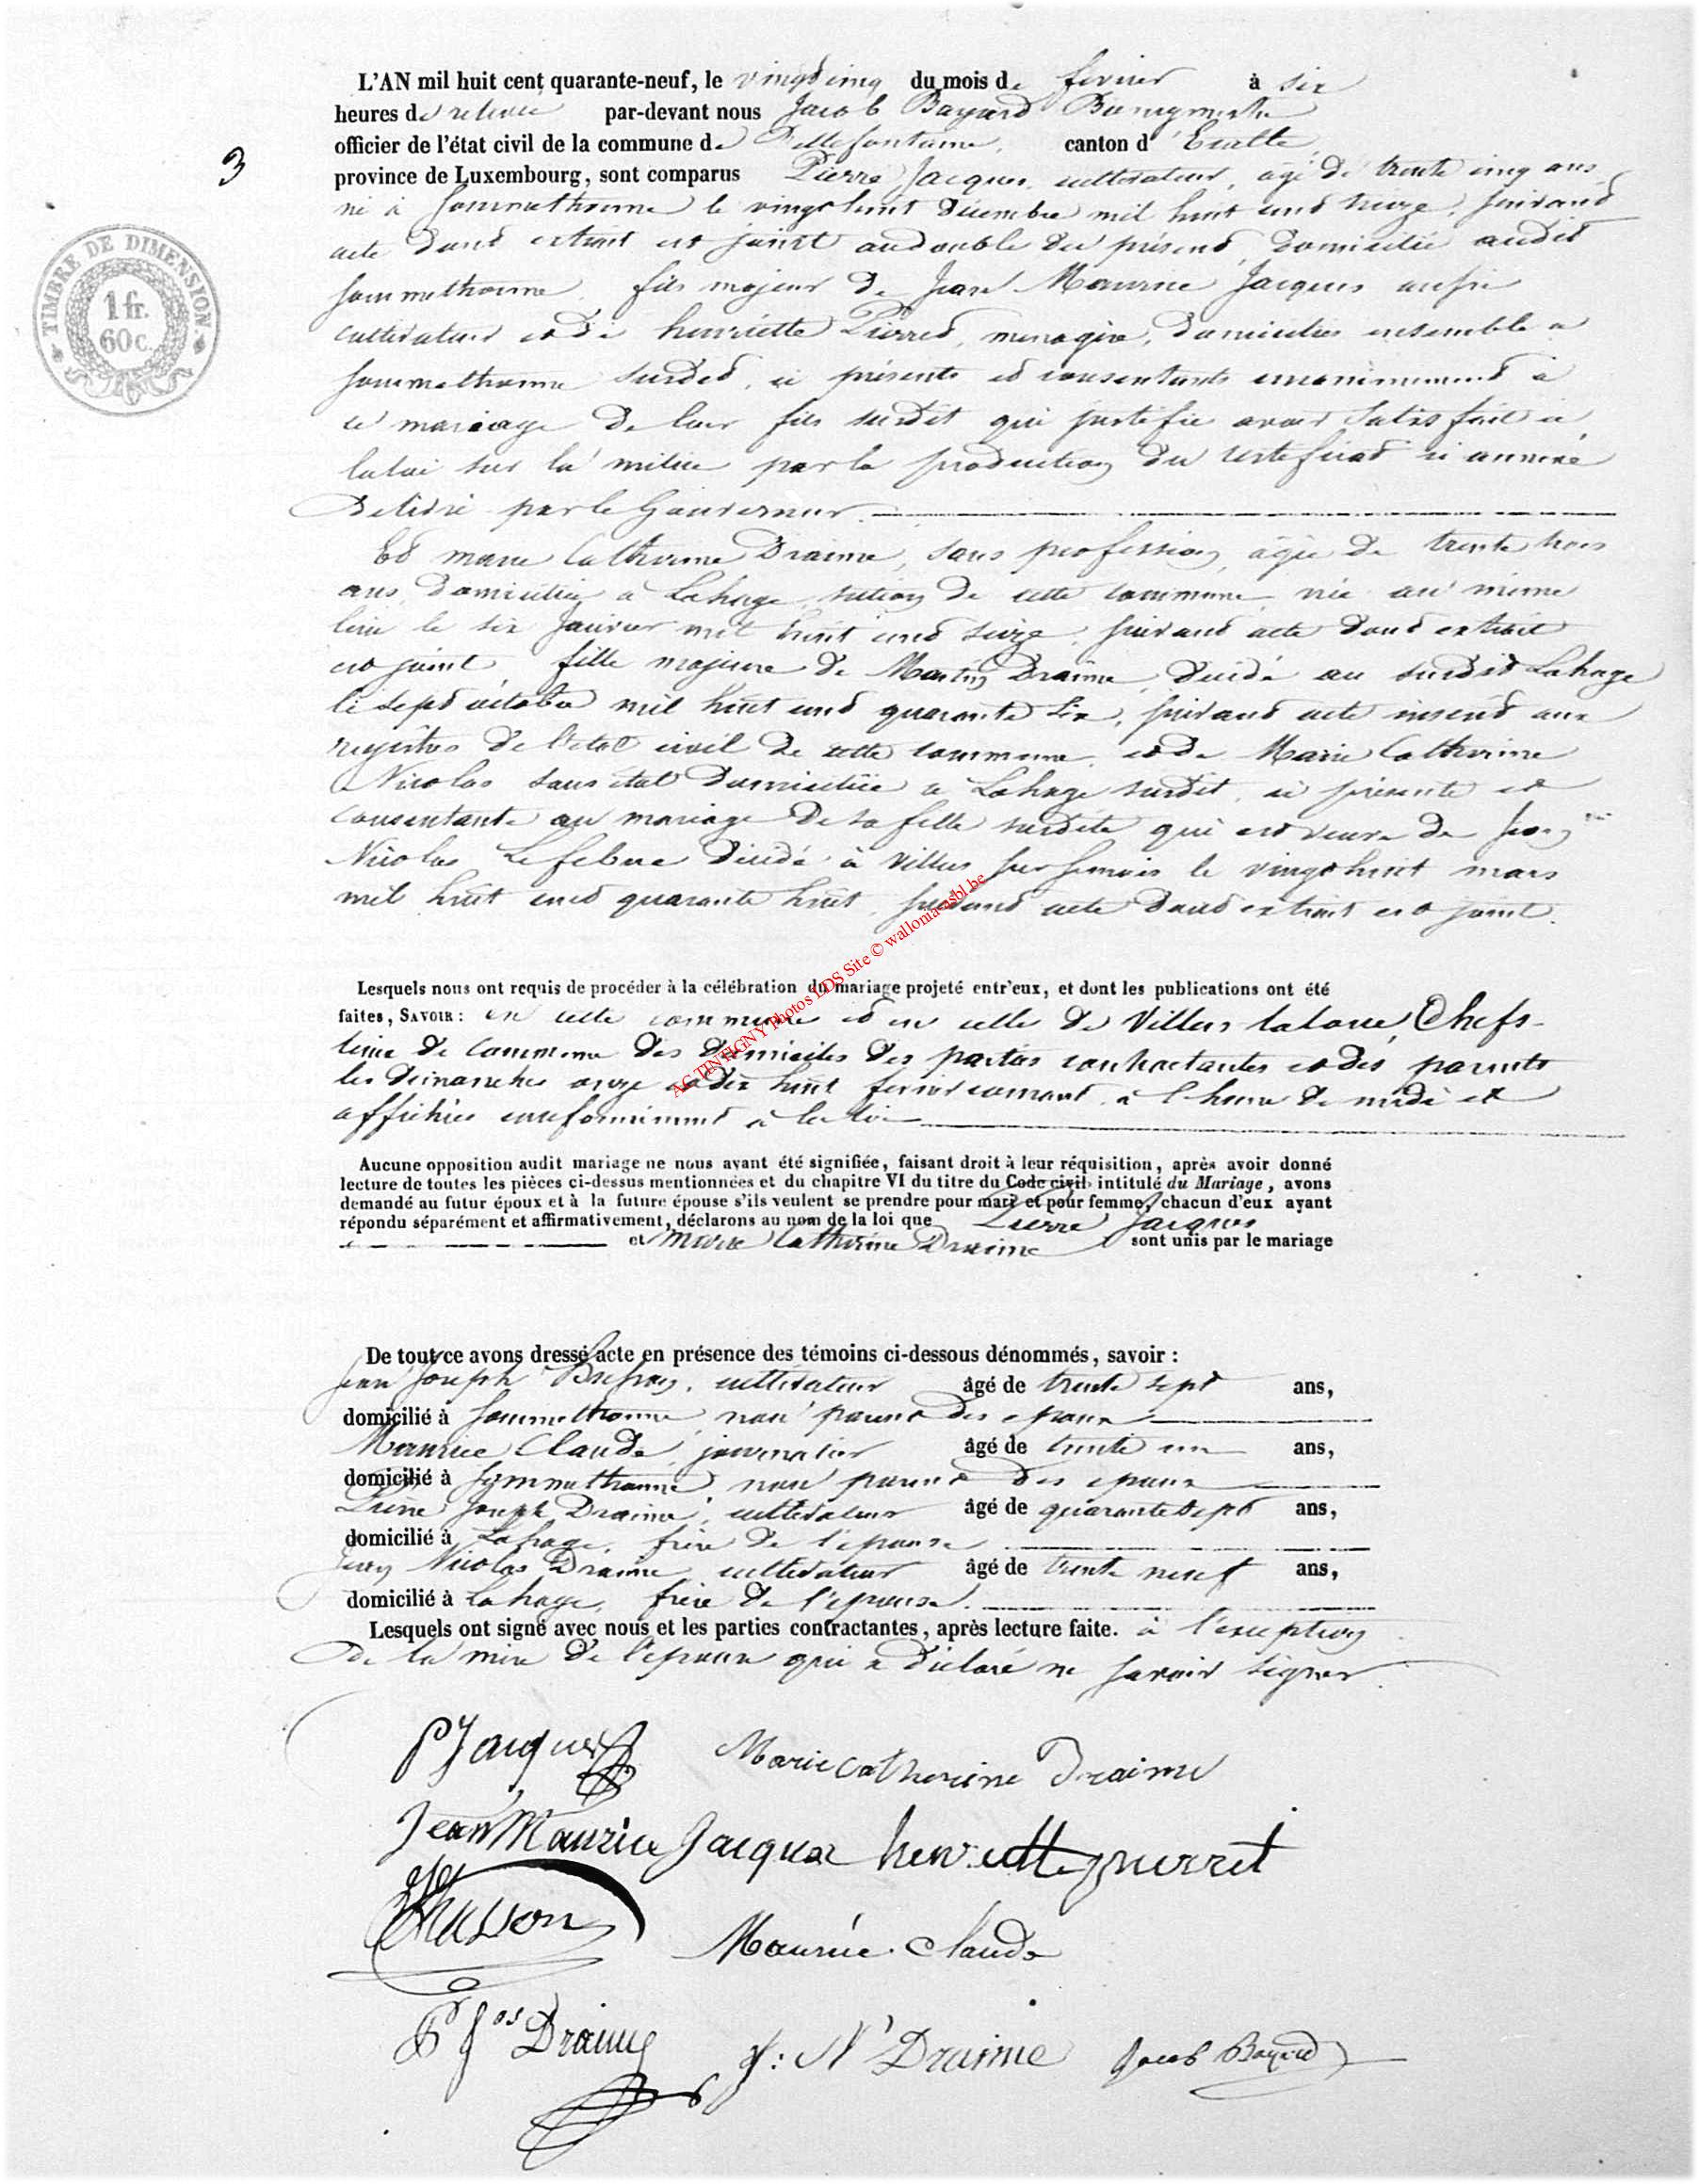 3
TIMBRE DE DIMENSION.
1 fr.
60 c.
L'AN mil huit cent quarante-neuf, le vingt cinq du mois de fevrier à six
heures de relevée par-devant nous Jacob Bayard Bourgmestre
officier de l'état civil de la commune de Bellefontaine, canton d'Etalle,
province de Luxembourg, sont comparus Pierre Jacques, cultivateur, âgé de trente cinq ans
né à Sommethonne le vingt huit Décembre mil huit cent treize, suivant
acte dont extrait est joint au double du présent, domicilié audit
Sommethonne, fils majeur de Jean Maurice Jacques aussi
cultivateur et de henriette Pierret, menagère, domiciliés ensemble a
Sommethonne susdit, ici présents et consentants unanimement a
ce mariage de leur fils susdit qui justifie avoir satisfait à
la loi sur la milice par la production du certificat ci annexé
Delivré par le Gouverneur.
Et marie Catherine Draime, sans profession, âgée de trente trois
ans, domiciliée a Lahage, section de cette commune, née au même
lieu le six Janvier mil huit cent seize, suivant acte dont extrait
est joint, fille majeure de Martin Draime, décédé au susdit Lahage
le sept octobre mil huit cent quarante six, suivant acte inséré aux
registres de l'état civil de cette commune, et de Marie Catherine
Nicolas sans état domiciliée a Lahage susdit, ici présente et
consentante au mariage de sa fille susdite qui est veuve de Jean
Nicolas Lefebvre décédé à Villers sur Semois le vingt huit mars
mil huit cent quarante huit, suivant acte dont extrait est joint.
Lesquels nous ont requis de procéder à la célébration du mariage projeté entr'eux, et dont les publications ont été
faites, SAVOIR : en cette commune et en celle de Villers la loue, Chefs-
lieux de Commune des domiciles des parties contractantes et des parents
les dimanches onze et dix huit fevrier courant, a l'heure de midi et
affichées conformément a la loi
Aucune opposition audit mariage ne nous ayant été signifiée, faisant droit à leur réquisition, après avoir donné
lecture de toutes les pièces ci-dessus mentionnées et du chapitre VI du titre du Code civil intitulé du Mariage, avons
demandé au futur époux et à la future épouse s'ils veulent se prendre pour mari et pour femme, chacun d'eux ayant
répondu séparément et affirmativement, déclarons au nom de la loi que Pierre Jacques
et Marie Catherine Draime sont unis par le mariage
De tout ce avons dressé acte en présence des témoins ci-dessous dénommés, savoir :
Jean Joseph, cultivateur âgé de trente sept ans,
domicilié à Sommethonne, non parent des epoux
Maurice Claude, journalier âgé de trente un ans,
domicilié à Sommethonne non parent des epoux
Pierre Joseph Draime, cultivateur âgé de quarante sept ans,
domicilié à Lahage, frère de l'epouse
Jean Nicolas Draime, cultivateur âgé de trente neuf ans,
domicilié à Lahage, frère de l'epouse.
Lesquels ont signé avec nous et les parties contractantes, après lecture faite. à l'exception
De la mère de l'epouse qui a déclaré ne savoir signer.
P Jacques Marie Catherine Draime
Jean Maurice Jacques henriette pierret
Husson
Maurice Claude
P Jos Draime J: N Draime Jacob Bayard
AC TINTIGNY Photos LDS Site © wallonia-asbl.be